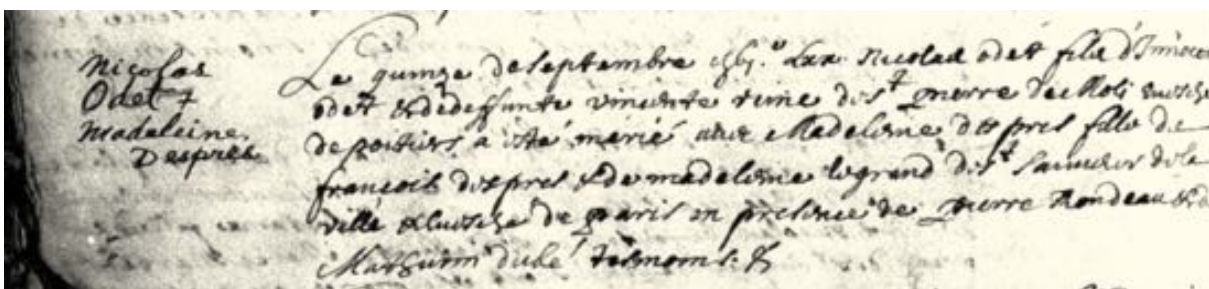 Nicolas
Odet &
Madeleine
Despres
Le quinze de septembre LXX Nicolas odet fils d'Innoce
odet & de deffunte vincente reine de st pierre eveché
de poitiers a esté marié avec Madeleine despres fille de
francois despres & de madeleine legrand de st sauveur de la
ville & evesché de paris en presence de pierre Rondeau & de
Mathurin dubé tesmoins.